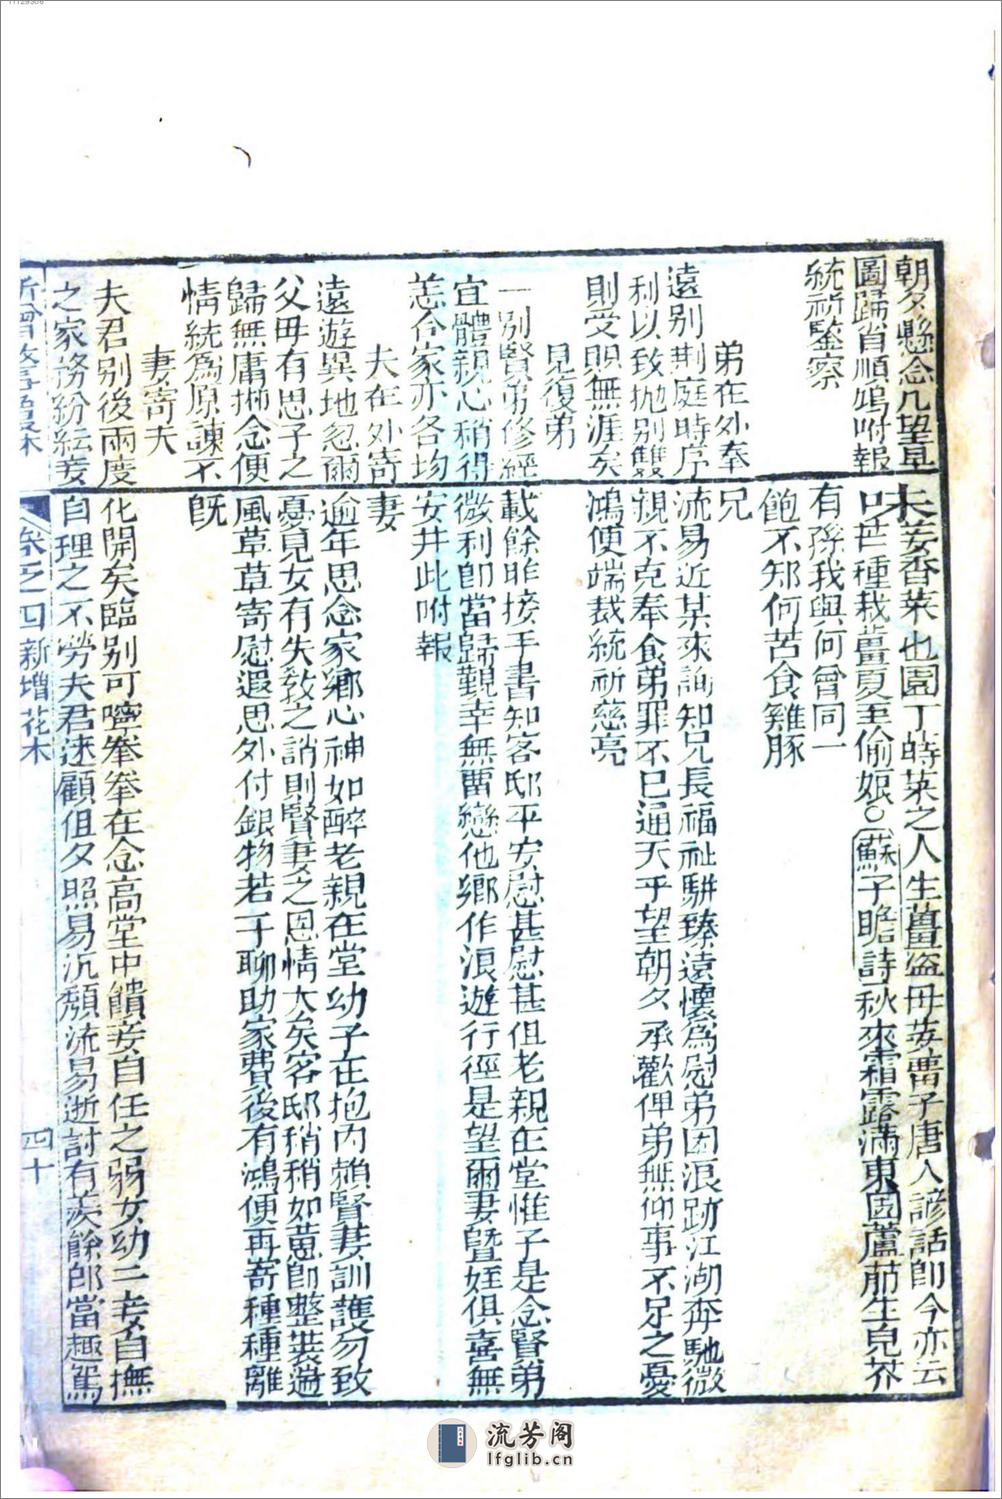 朝夕懸念几望早
圖歸省順鳴附報
統祈鑒察
香菜也園丁蒔菜之人生薑盗母芰凿子唐人諺話即今亦云
口芒種栽薑夏至偷娘○蘇子瞻詩秋來霜露滿東園蘆菔生兒芥
有孫我與何曾同一
飽不知何苦食雞豚
弟在外奉兄
遠别荆庭時序流易近某來詢知兄長福祉駢臻遠懷為慰弟因浪跡江湖奔馳微
利以致抛别雙親不克奉食弟罪不已通天乎望朝夕承歡俾弟無仰事不足之憂
則受賜無涯矣鴻便端裁統祈慈亮
兄復弟
一别賢弟修經載餘昨接手書知客邸平安慰甚慰甚但老親在堂惟子是念賢弟
宜體親心稍得微利即當歸覲幸無畱戀他鄉作浪遊行徑是望爾妻暨姪俱喜無
恙合家亦各均安井此附報
夫在外寄妻
遠遊異地忽爾逾年思念家鄉心神如醉老親在堂幼子在抱内賴賢妻訓護勿致
父毋有思子之憂見女有失敎之誚則賢妻之恩情大矣客邸稍稍如意即整裝遄
歸無庸掛念便風草草寄慰遐思外付銀物若干聊助家費後有鴻便再寄種種離
情統為原諫不旣
妻寄夫
夫君别後兩度化開矣臨别可嚀拳拳在念高堂中饋妾自任之弱女幼子妾自撫
之家務紛紜妾自理之不勞夫君迷顧但夕照易沉頹流易逝討有羨餘郎當趣駕
卷之四新增花木
四十
流芳阁
lfglib.cn